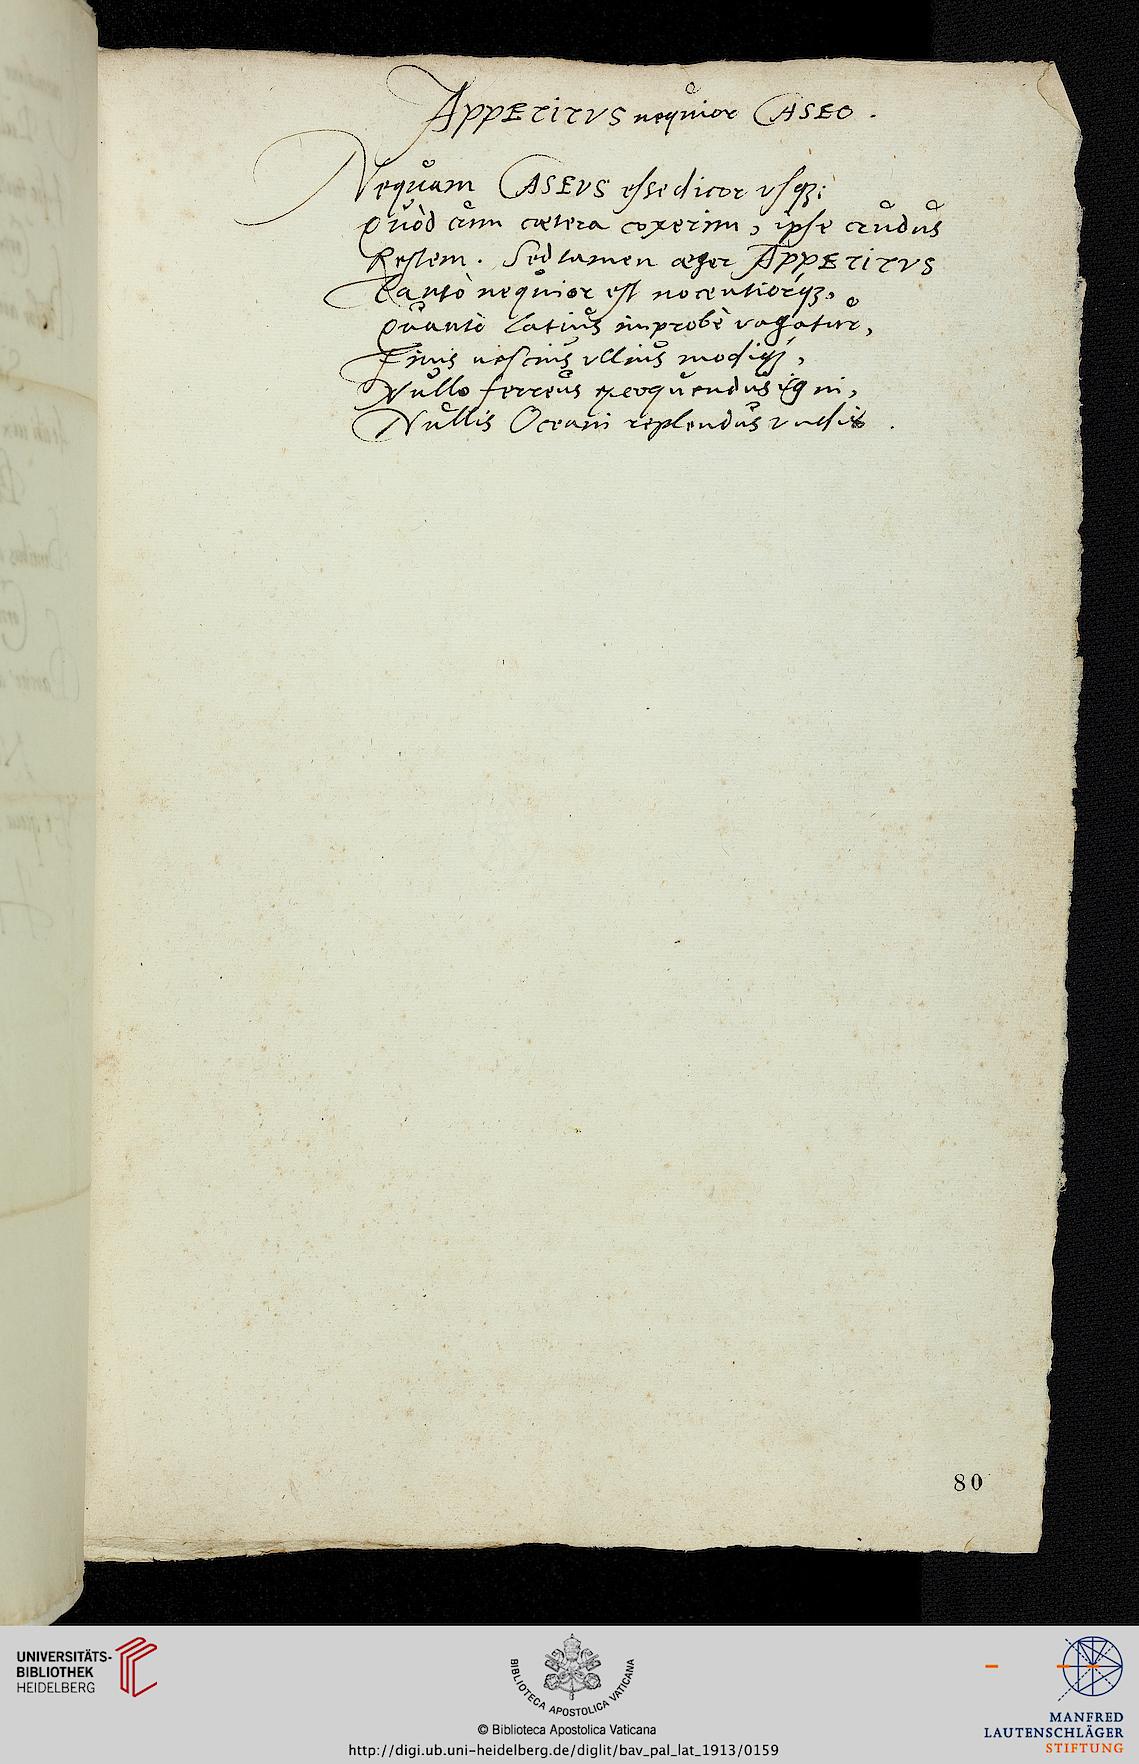 APPETITVS nequior CASEO.
Nequam CASEVS esse dicor vsq3:
Quòd cùm cætera coxerim, ipse crudus
Restem. Sed tamen æger APPETITVS
Tantò nequior est nocentiorq́3,
Quantò latius improbè vagatur,
Finis nescius vllius modiq́3,
Nullo ferreus excoquendus igni,
Nullis Oceani replendus vndis.
80
UNIVERSITÄTS-
BIBLIOTHEK
HEIDELBERG
BIBLIOTECA APOSTOLICA VATICANA
© Biblioteca Apostolica Vaticana
http://digi.ub.uni-heidelberg.de/diglit/bav_pal_lat_1913/0159
MANFRED
LAUTENSCHLÄGER
STIFTUNG